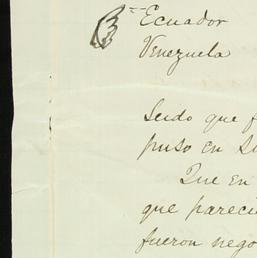 Ecuador
Venezuela
Leido que f
puso en su
Que en
que pareci
fueron nego